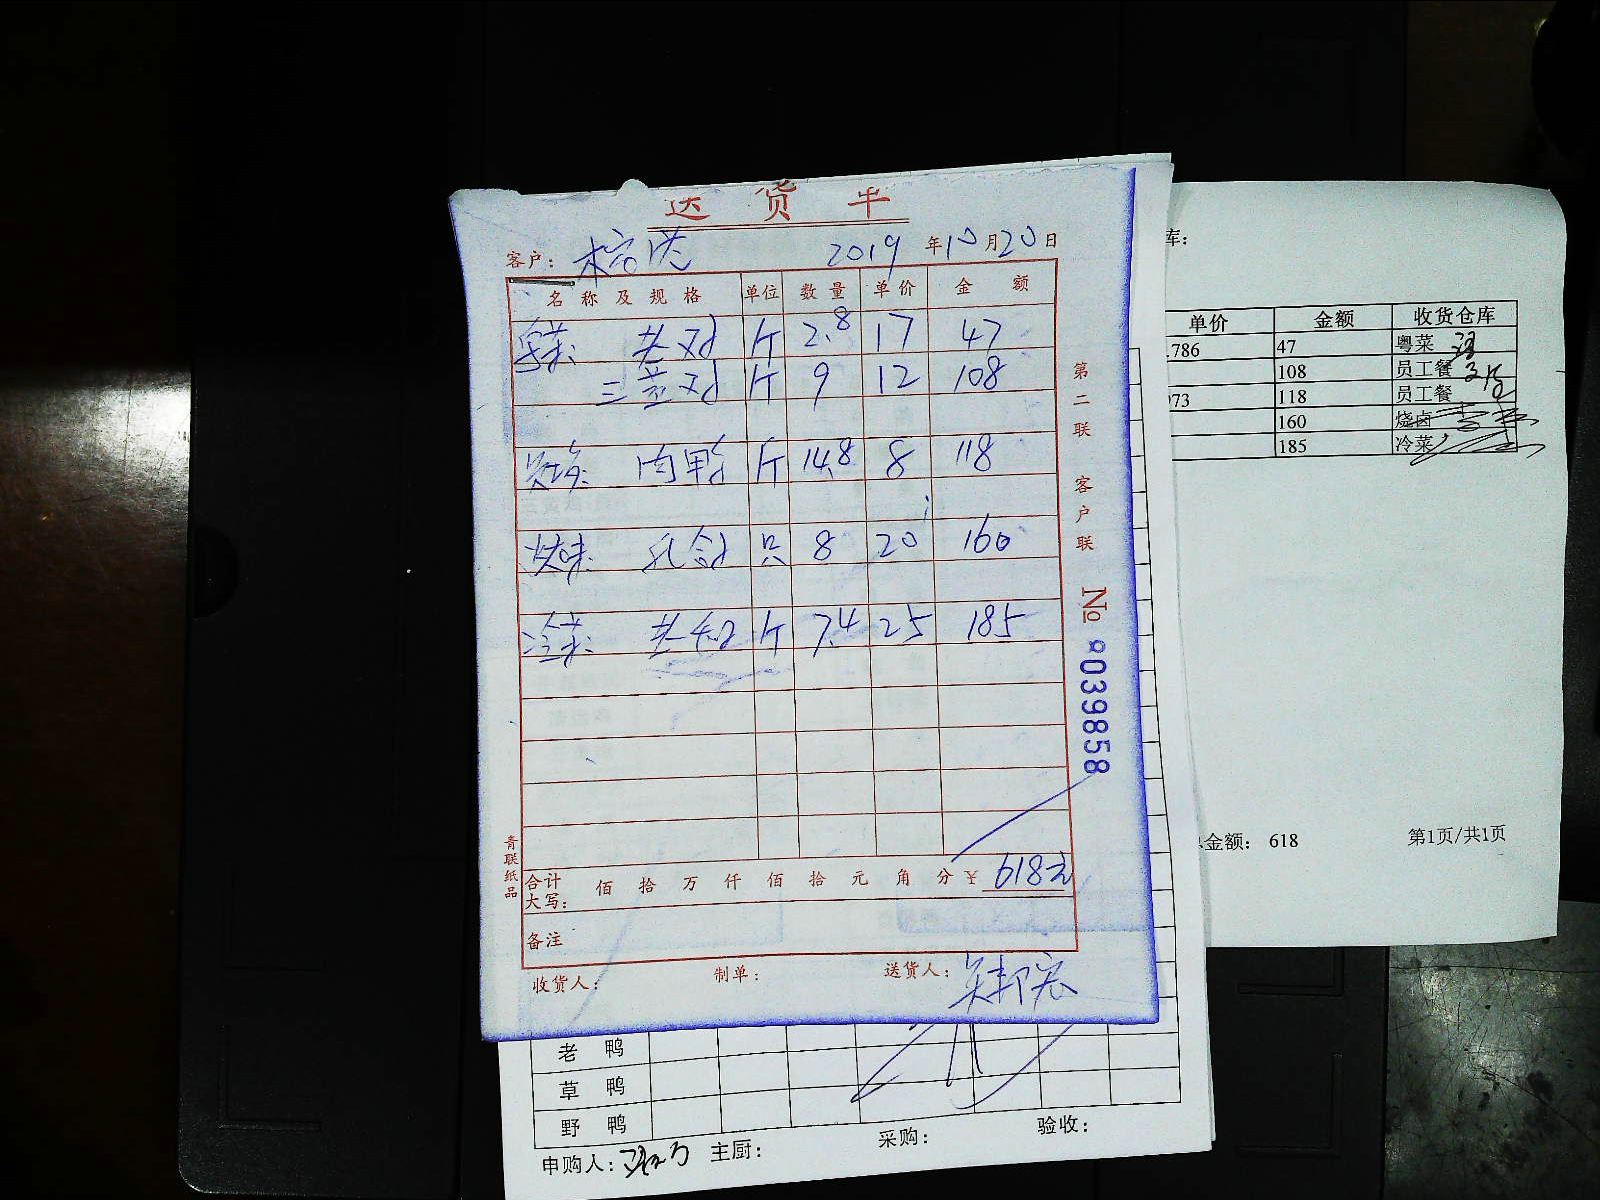 送 货 单
客户： 2019 年10月20日
名称及规格 单位 数量 单价 金额
粤菜: 光鸡 斤 2.8 17 47
三黄鸡 斤 9 12 108
肉鸭 斤 14.8 8 118
烧味: 乳鸽 只 8 20 160
冷菜: 斤 7.4 25 185
合计大写： 佰 拾 万 仟 佰 拾 元 角 分 ¥ 618元
备注
收货人： 制单： 送货人：
第二联 客户联
№ 0039858
青联纸品
库：
单价 金额 收货仓库
.786 47 粤菜
108 员工餐
73 118 员工餐
160 烧卤
185 冷菜
总金额： 618 第1页/共1页
老 鸭
草 鸭
野 鸭
申购人： 主厨： 采购： 验收：